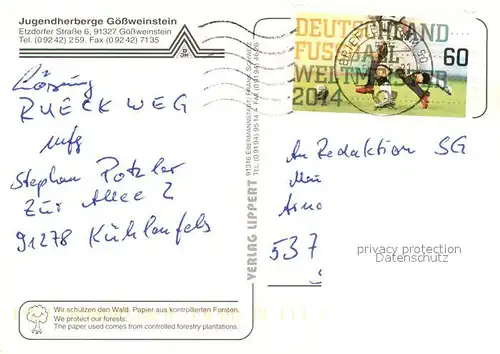 Jugendherberge Gößweinstein
Etzdorfer Straße 6, 91327 Gößweinstein
Tel. (0 92 42) 259. Fax (0 92 42) 7135
DEUTSCHLAND
FUSSBALL
WELTMEISTER
2014
60
BRIEFZENTRUM 90
Lösung
RUECKWEG
Mfg
Stephan Potzler
Zur Allee 2
91278 Kühlenfels
VERLAG LIPPERT
91316 EBERMANNSTADT
An Redaktion SG
537
privacy protection
Datenschutz
Wir schützen den Wald. Papier aus kontrollierten Forsten.
We protect our forests.
The paper used comes from controlled forestry plantations.